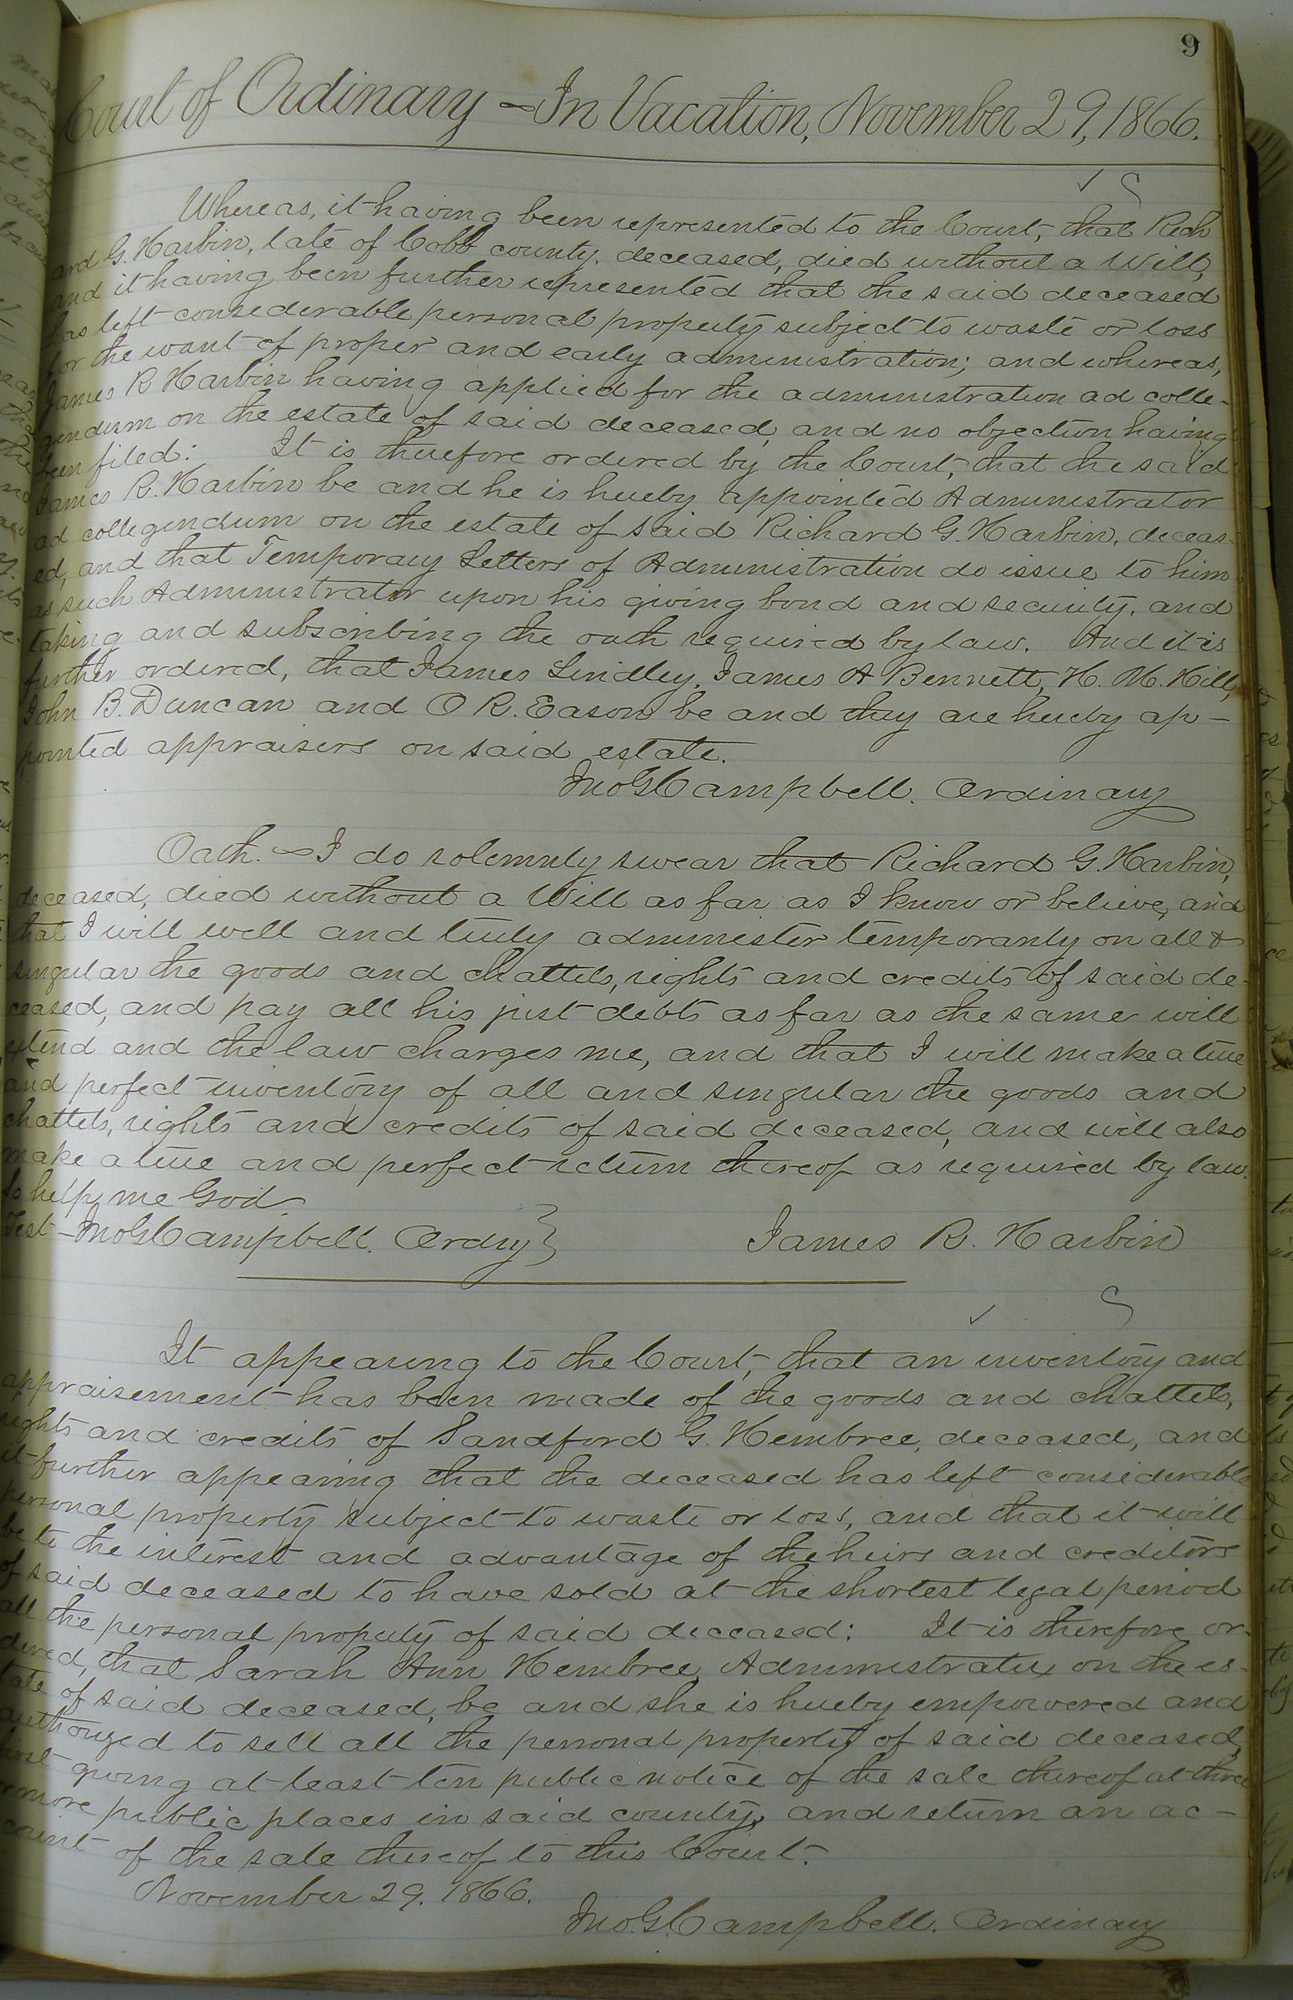 9
Court of Ordinary – In Vacation, November 29, 1866.
Whereas, it having been represented to the Court, that Rich
ard G. Harbin, late of Cobb county, deceased, died without a Will,
and it having been further represented that the said deceased
has left considerable personal property subject to waste or loss
for the want of proper and early administration; and whereas,
James R Harbin having applied for the administration ad colle-
gendum on the estate of said deceased, and no objection having
been filed: It is therefore ordered by the Court, that the said
James R. Harbin be and he is hereby appointed Administrator
ad collegendum on the estate of said Richard G. Harbin, deceas-
ed, and that Temporary Letters of Administration do issue to him
as such Administrator upon his giving bond and security, and
taking and subscribing the oath required by law. And it is
further ordered, that James Lindley, James A Bennett, H. M. Hill,
John B. Duncan and O R. Eason be and they are hereby ap-
pointed appraisers on said estate.
Jno G Campbell. Ordinary
Oath. – I do solemnly swear that Richard G. Harbin,
deceased, died without a Will as far as I know or believe, and
that I will well and truly administer temporarily on all &
singular the goods and chattels, rights and credits of said de-
ceased, and pay all his just debts as far as the same will
extend and the law charges me, and that I will make a true
and perfect inventory of all and singular the goods and
chattels, rights and credits of said deceased, and will also
make a true and perfect return thereof as required by law.
So help me God
Test – Jno G Campbell. Ordry } James R. Harbin
It appearing to the Court, that an inventory and
appraisement has been made of the goods and chattels,
rights and credits of Sandford G. Hembree, deceased, and
it further appearing that the deceased has left considerable
personal property subject to waste or loss, and that it will
be to the interest and advantage of the heirs and creditors
of said deceased to have sold at the shortest legal period
all the personal property of said deceased: It is therefore or-
dered, that Sarah Ann Hembree, Administratrix on the es-
tate of said deceased, be and she is hereby empowered and
authorized to sell all the personal property of said deceased,
first giving at least ten public notice of the sale thereof at three
or more public places in said county, and return an ac-
count of the sale thereof to this Court.
November 29. 1866.
Jno G. Campbell. Ordinary